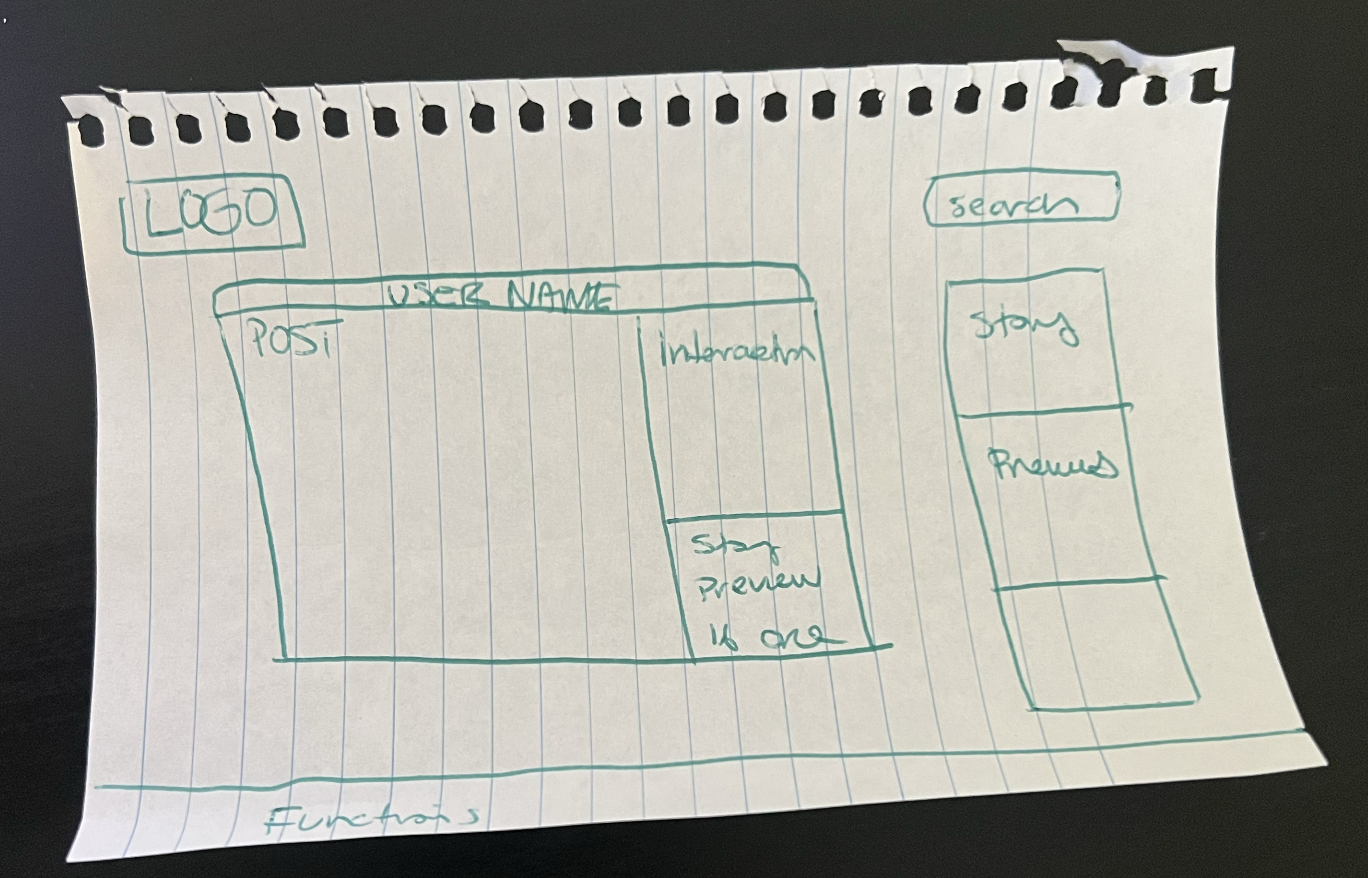 LOGO
search
USER NAME
POST
Interaction
Story
Previews
Story
Preview
If one
Functions